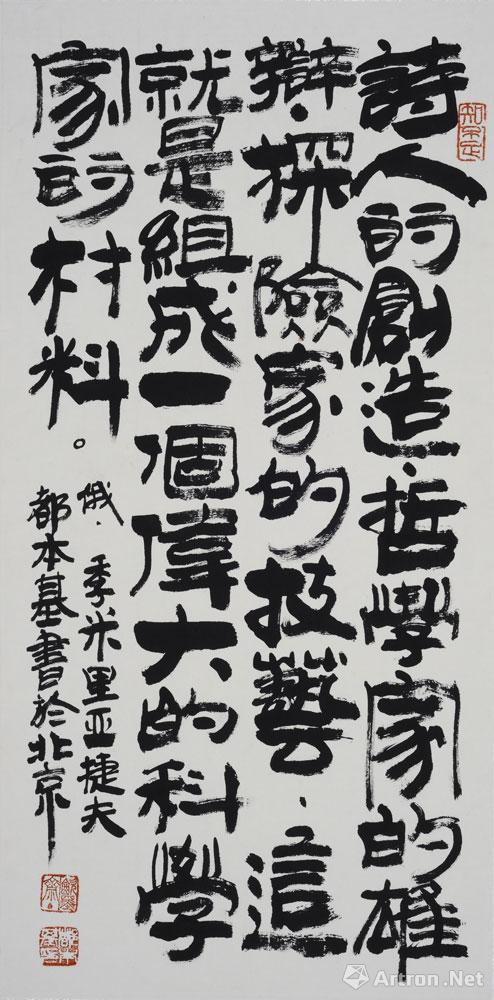 詩人的創造·哲學家的雄
辯·探險家的技藝·這
就是組成一個偉大的科學
家的材料。
俄·季米里亚捷夫
都本基書於北京
知不足
Artron.Net